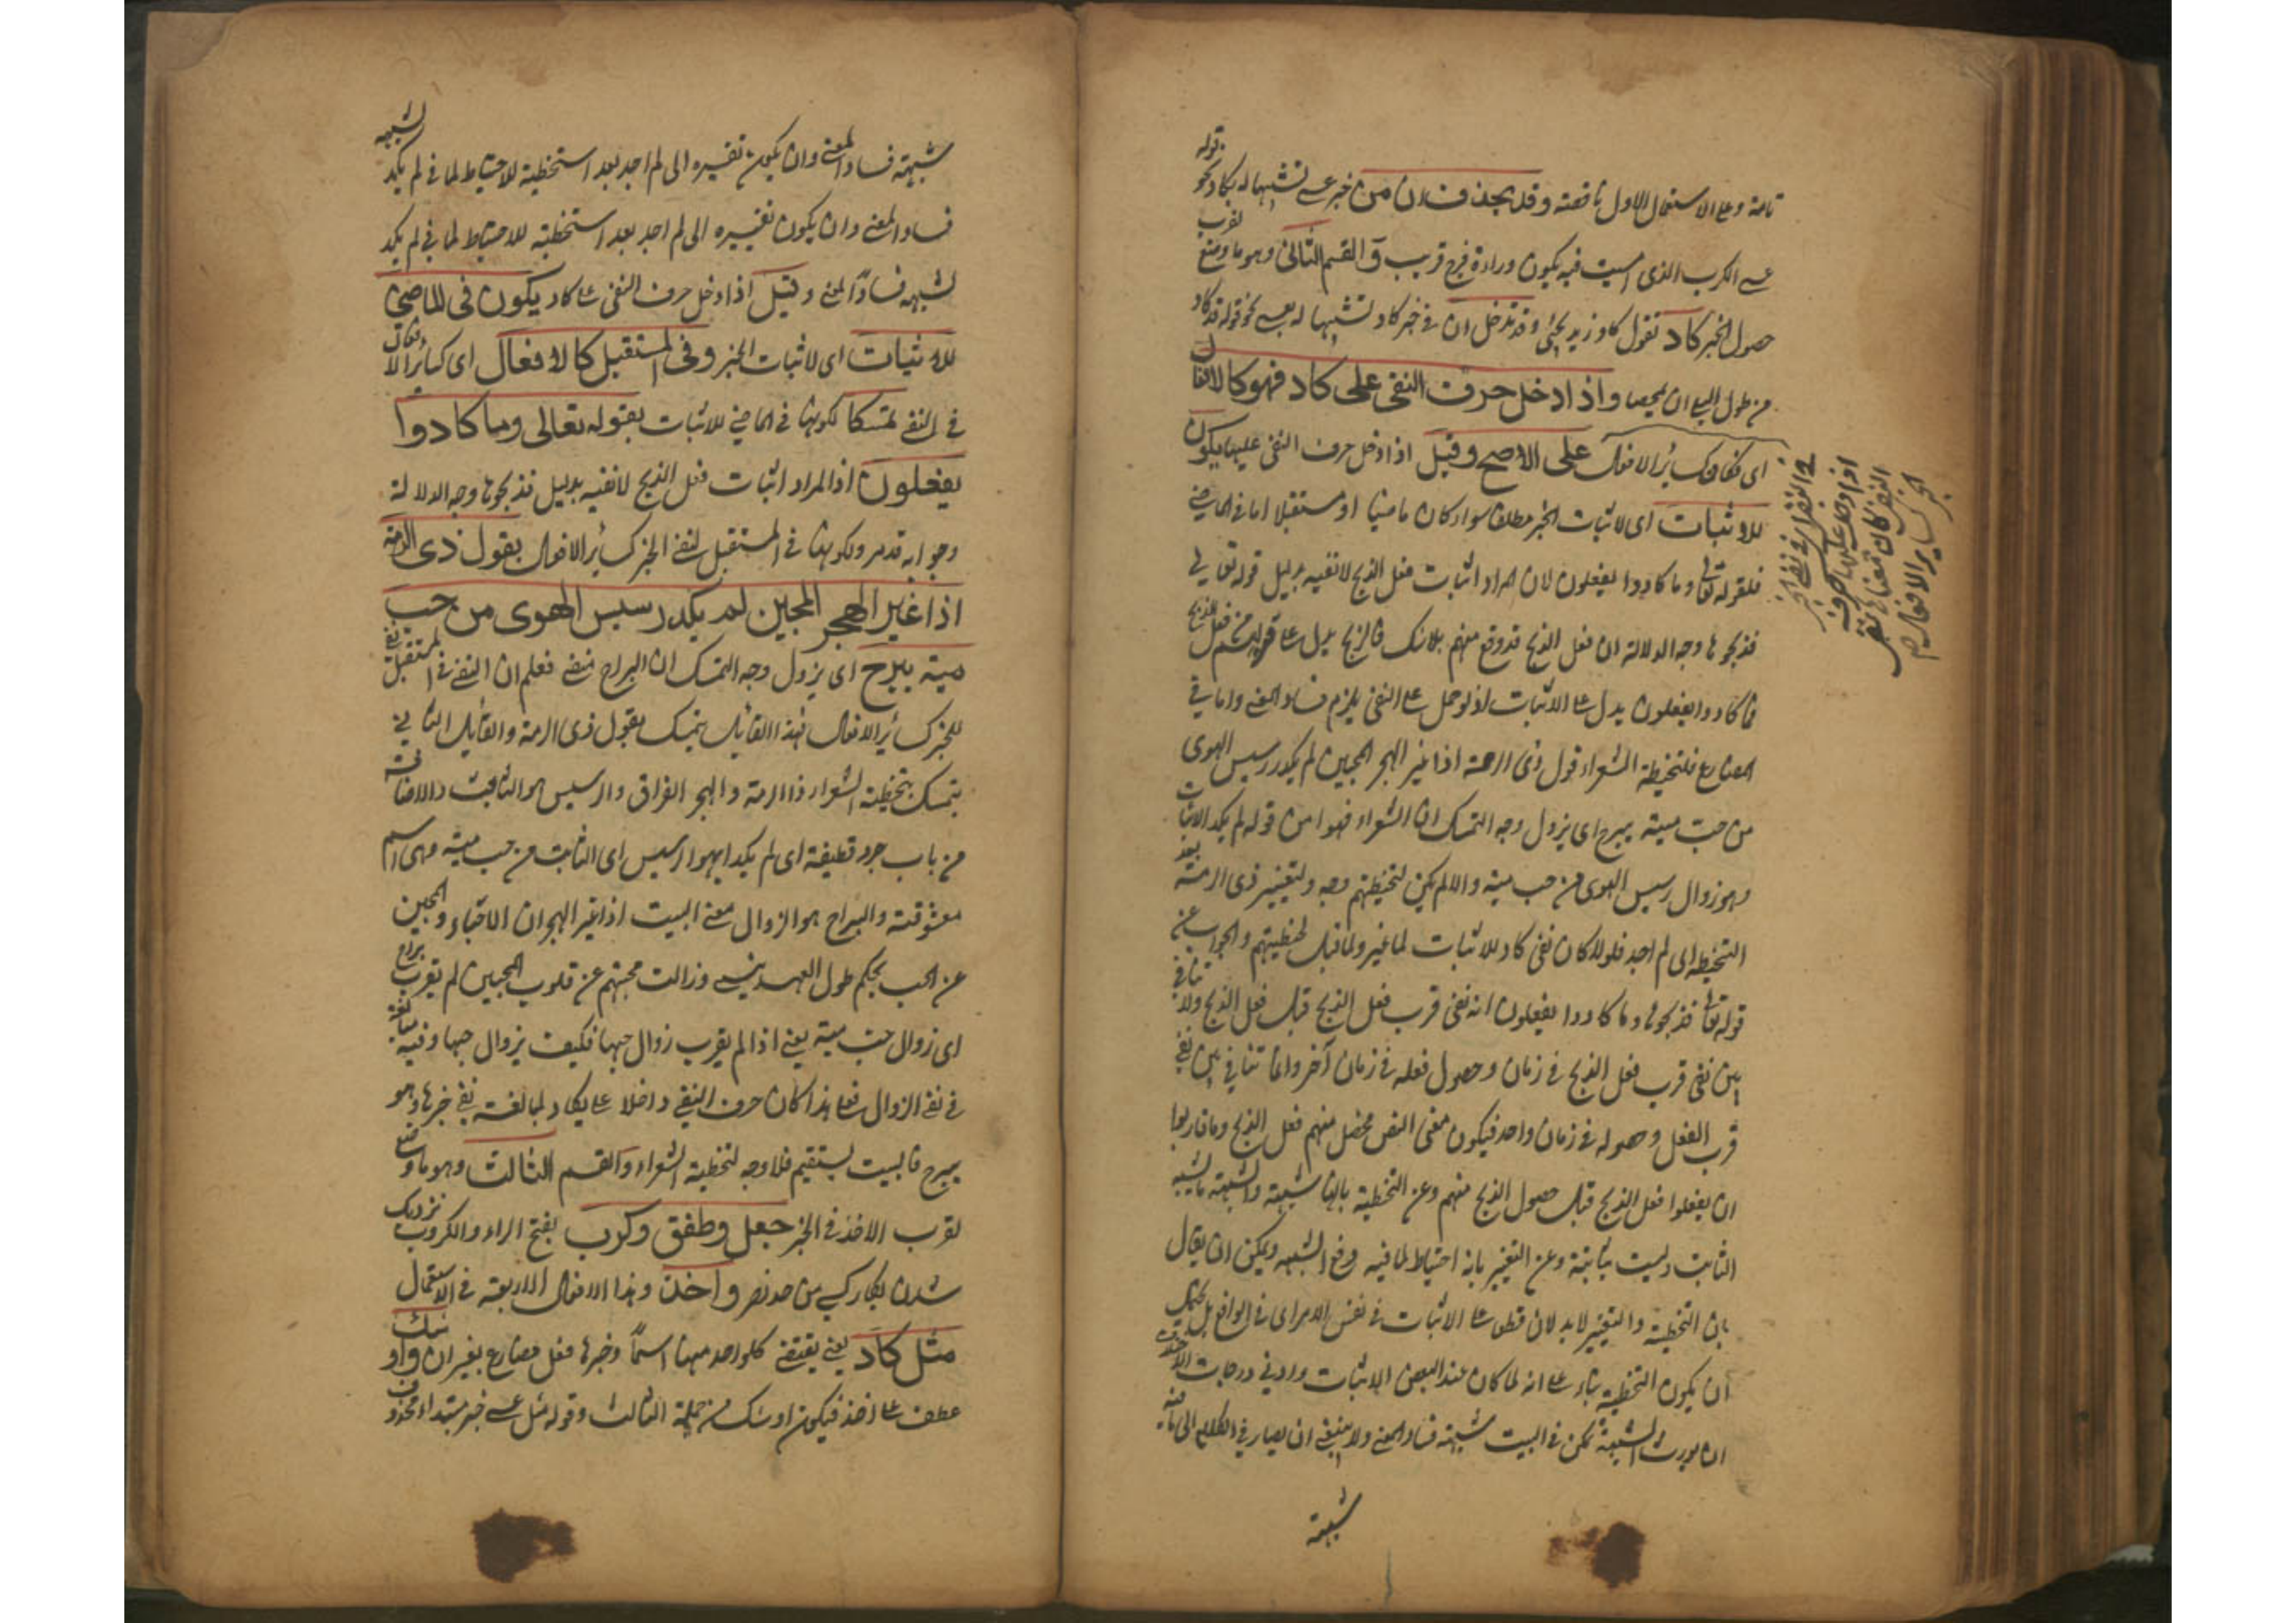 تامة وعلى الاستعمال الاول ناقصة وقد يحذف ان من خبر عسى تشبيها له بكاد نحو قوله
عسى الكرب الذى امسيت فيه يكون وراءه فرج قريب و القسم الثانى وهو ما وضع لقرب
حصول الخبر كاد تقول كاد زيد يجئ وقد تدخل ان فى خبر كاد تشبيها له بعسى نحو قوله قد كاد
من طول البلى ان يمصحا واذا دخل حرف النفى على كاد فهو كالافعال
اى كسائر الافعال على الاصح وقيل اذا دخل حرف النفى عليها يكون
للاثبات اى لاثبات الخبر مطلقا سواء كان ماضيا او مستقبلا اما فى الماضى
فلقوله تعالى وما كادوا يفعلون لان المراد اثبات فعل الذبح لا نفيه بدليل قوله تعالى
فذبحوها وجه الدلالة ان فعل الذبح قد وقع منهم بلا شك فالذبح يدل على
فما كادوا يفعلون يدل على الاثبات لو حمل على النفى يلزم فساد المعنى واما فى
المضارع فلتخطية الشعراء قول ذى الرمة اذا غير الهجر المحبين لم يكد رسيس الهوى
من حب مية يبرح اى يزول وجه التمسك ان الشعراء فهموا من قوله لم يكد الاثبات
وهو زوال رسيس الهوى من حب مية والا لم يكن لتخطيتهم وجه ولتغيير ذى الرمة بعد
التخطية الى لم اجد فلولا كان نفى كاد للاثبات لما غير ولما قبل تخطيتهم والجواب عن
قوله تعالى فذبحوها وما كادوا يفعلون انه نفى قرب فعل الذبح قبل فعل الذبح ولا تنافى
بين نفى قرب فعل الذبح فى زمان وحصول فعله فى زمان آخر وانما تنافى بين نفى
قرب الفعل وحصوله فى زمان واحد فيكون معنى النص محصل منهم فعل الذبح وما قاربوا
ان يفعلوا فعل الذبح قبل حصول الذبح منهم وعن التخطية بانها شبهة والشبهة ما يشبه
الثابت وليست بثابتة وعن التغيير بانه احتياط لما فيه دفع الشبهة ويمكن ان يقال
بان التخطية والتغيير لا يدلان قطعا على الاثبات فى نفس الامر اى فى الواقع بل يحتمل
ان يكون التخطية بناء على انه لما كان عند البعض الاثبات وادنى درجات الاختلاف
ان يورث الشبهة تمكن فى البيت شبهة فساد المعنى ولا ينبغى ان يصار فى الكلام الى ما فيه
شبهة
اذا دخل عليها حرف
النفى كان معناها نفى
الخبر كسائر الافعال
شبهة فساد المعنى وان يكون تغييره الى لم اجد بعد استخطية للاحتياط لما فى لم يكد لشبهة
فساد المعنى وان يكون تغييره الى لم اجد بعد استخطية للاحتياط لما فى لم يكد
لشبهه فساد المعنى وقيل اذا دخل حرف النفى على كاد يكون فى الماضى
للاثبات اى لاثبات الخبر وفى المستقبل كالافعال اى كسائر الافعال
فى النفى تمسكا لكونها فى الماضى للاثبات بقوله تعالى وما كادوا
يفعلون اذ المراد اثبات فعل الذبح لا نفيه بدليل فذبحوها وجه الدلالة
وجوابه قد مر ولكونها فى المستقبل لنفى الخبر كسائر الافعال بقول ذى الرمة
اذا غير الهجر المحبين لم يكد رسيس الهوى من حب
مية يبرح اى يزول وجه التمسك ان البراح منفى فعلم ان النفى فى المستقبل نفى
للخبر كسائر الافعال فهذا القائل يتمسك بقول ذى الرمة والقائل الثانى
يتمسك بتخطية الشعراء ذا الرمة والهجر الفراق والرسيس هو الثابت والاضافة
من باب جرد قطيفة اى لم يكد الهوا الرسيس اى الثابت من حب مية وهى اسم
معشوقته والبراح هو الزوال معنى البيت اذا غير الهجران الاحباء والمحبين
عن الحب بحكم طول العهد ينسى وزالت محبتهم عن قلوب المحبين لم يقرب براح
اى زوال حب مية يعنى اذا لم يقرب زوال حبها فكيف يزول حبها وفيه مبالغة
فى نفى الزوال فعلى هذا كان حرف النفى داخلا على يكاد لمبالغة نفى خبرها وهو
يبرح فالبيت يستقيم فلا وجه لتخطية الشعراء والقسم الثالث وهو ما وضع
لقرب الاخذ فى الخبر جعل وطفق وكرب بفتح الراء والكروب نزديك
شدن بكار كسى من حد نصر واخذ وهذا الافعال الاربعة فى الاستعمال
مثل كاد يعنى يقتضى كلواحد منها اسما وخبرها فعل مضارع بغير ان واوشك
عطف على اخذ فيكون اوشك من جملة الثالث وقوله مثل عسى خبر مبتداء محذوف